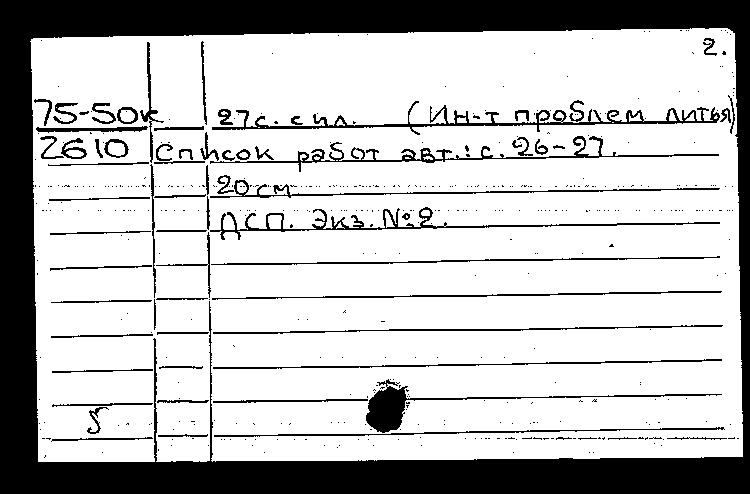 2.
75-50к 27с. с ил. (Ин-т проблем литья)
2610 Список работ авт.: с. 26-27.
20 см
ДСП. Экз. №2.